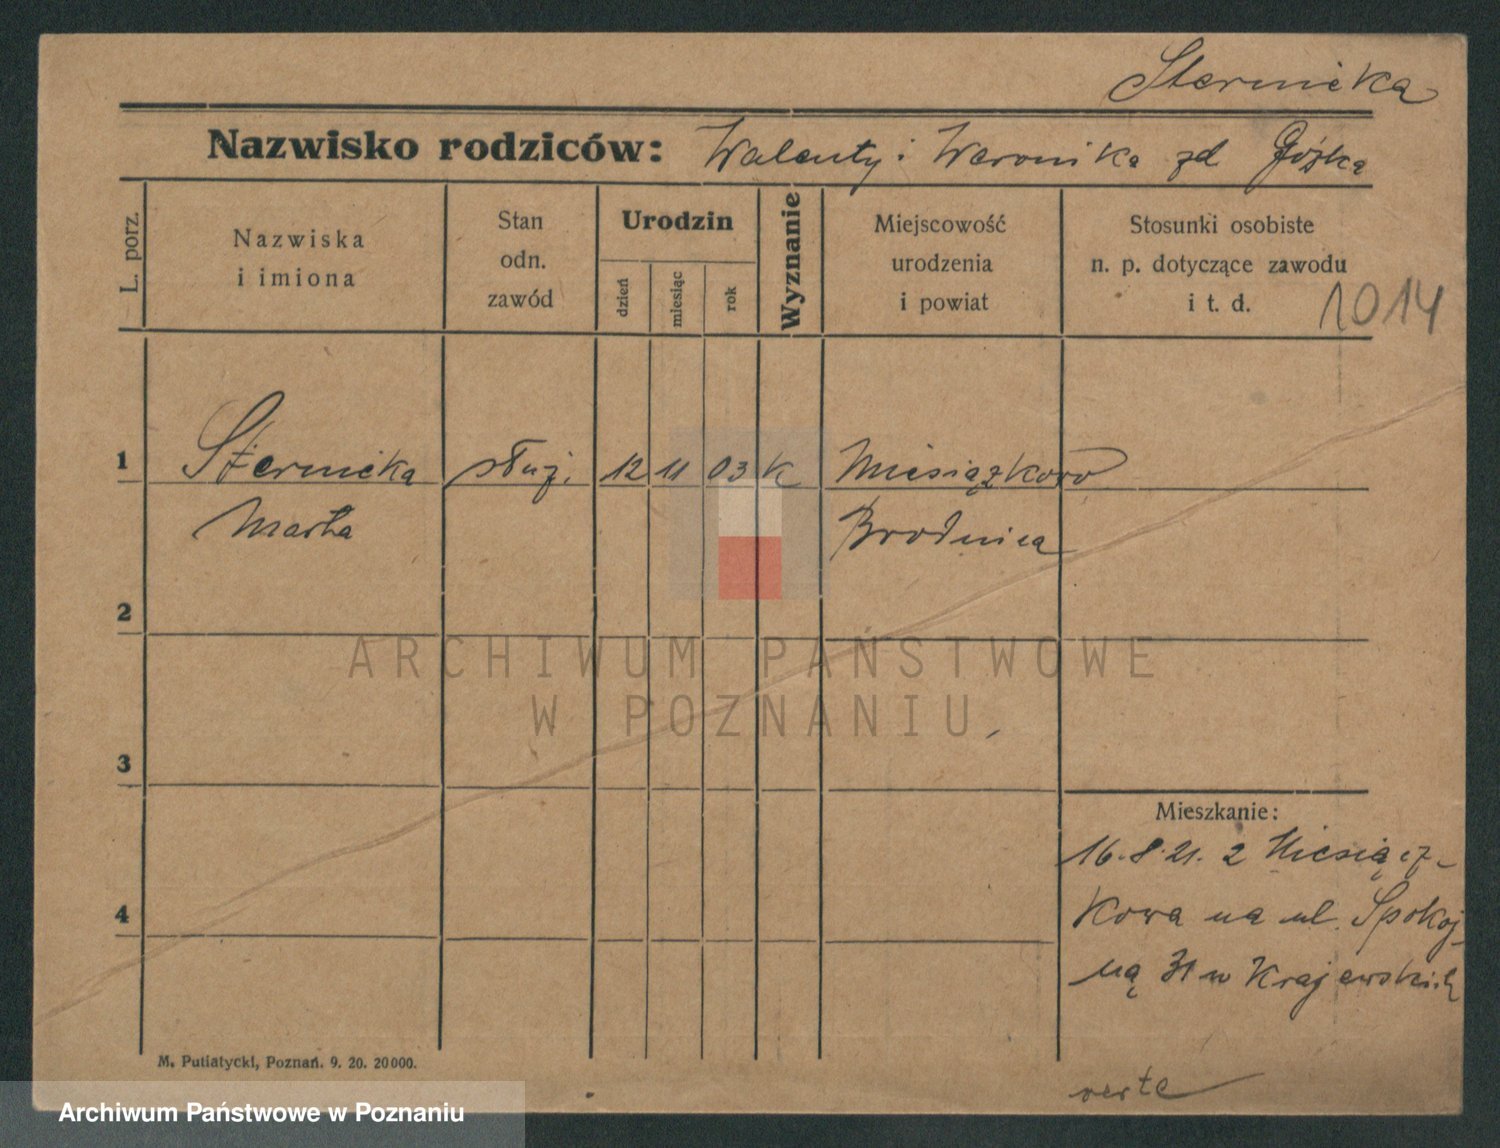 Sternicka
Nazwisko rodziców: Walenty i Weronika zd Góżka
L. porz.
Nazwiska
i imiona
Stan
odn.
zawód
Urodzin
dzień
miesiąc
rok
Wyznanie
Miejscowość
urodzenia
i powiat
Stosunki osobiste
n. p. dotyczące zawodu
i t. d.
1014
1 Sternicka służ. 12 11 03 K Miesiązkowo
Marta Brodnica
2
3
Mieszkanie:
16.8.21. z Miesiącz-
4
kowa na ul. Spokoj-
ną 31 w Krajewskich
M. Putiatycki, Poznań. 9. 20. 20000.
verte
ARCHIWUM PAŃSTWOWE
W POZNANIU
Archiwum Państwowe w Poznaniu